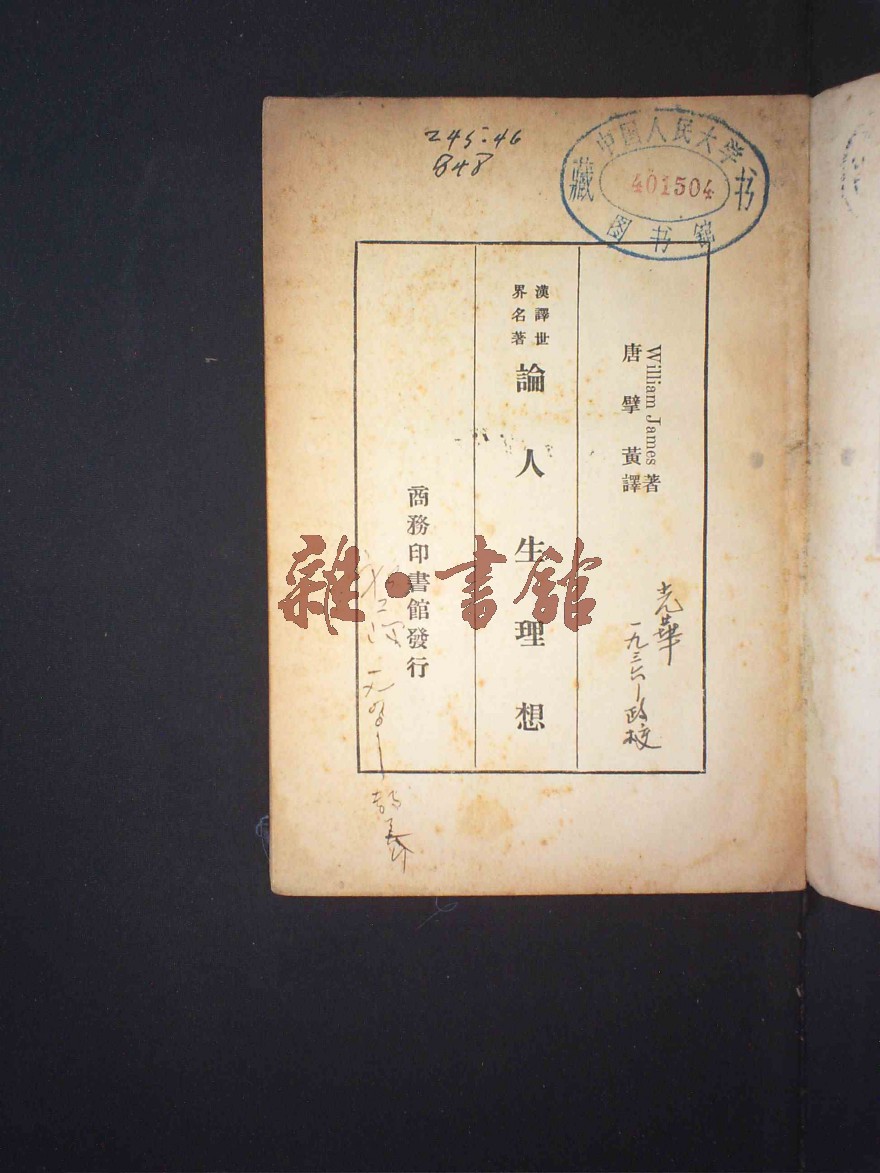 245.46
848
中国人民大学
藏书
401504
图书馆
William James 著
唐擘黃譯
漢譯世界名著
論人生理想
商務印書館發行
雜·書館
光華
一九三六—政校